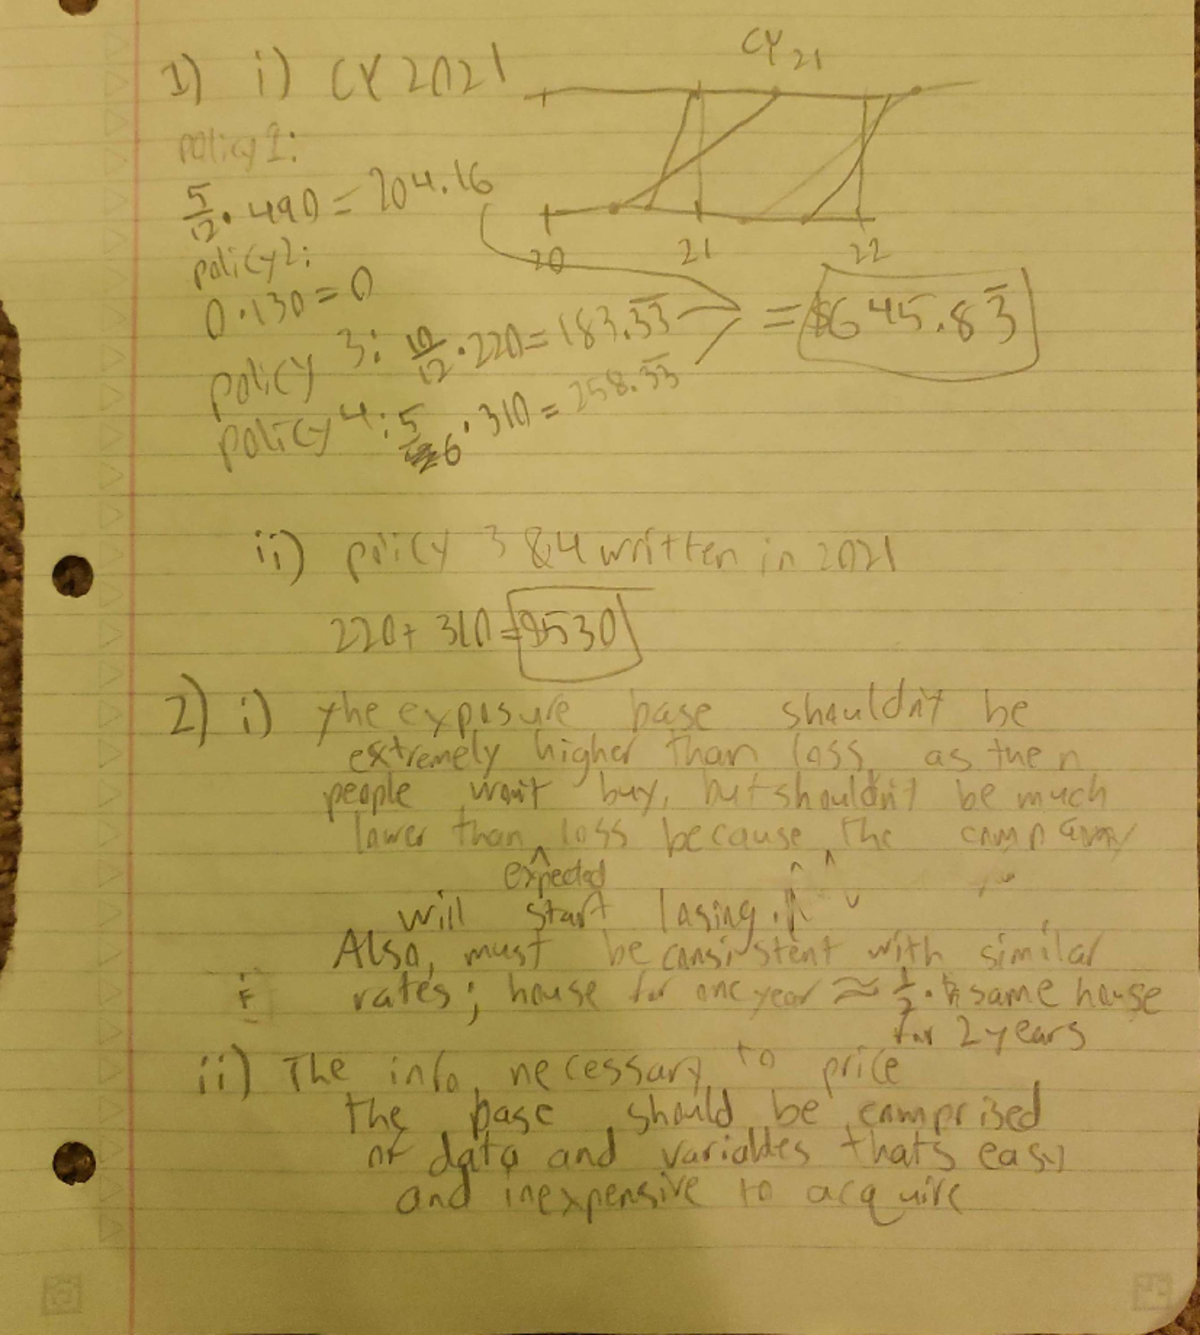 1) i) CY 2021
CY 21
policy 1:
5/12 · 490 = 204.16
policy 2:
0 · 130 = 0
20 21 22
policy 3: 10/12 · 220 = 183.33
= $645.83
policy 4: 5/6 · 310 = 258.33
ii) policy 3 & 4 written in 2021
220 + 310 = $530
2) i) the exposure base shouldn't be
extremely higher than loss, as then
people won't buy, but shouldn't be much
lower than ^ loss because the company
expected
will start losing.
Also, must be consistent with similar
rates; house for one year ≈ 1/2 · same house
for 2 years
ii) The info necessary to price
the base should be comprised
of data and variables thats easy
and inexpensive to acquire